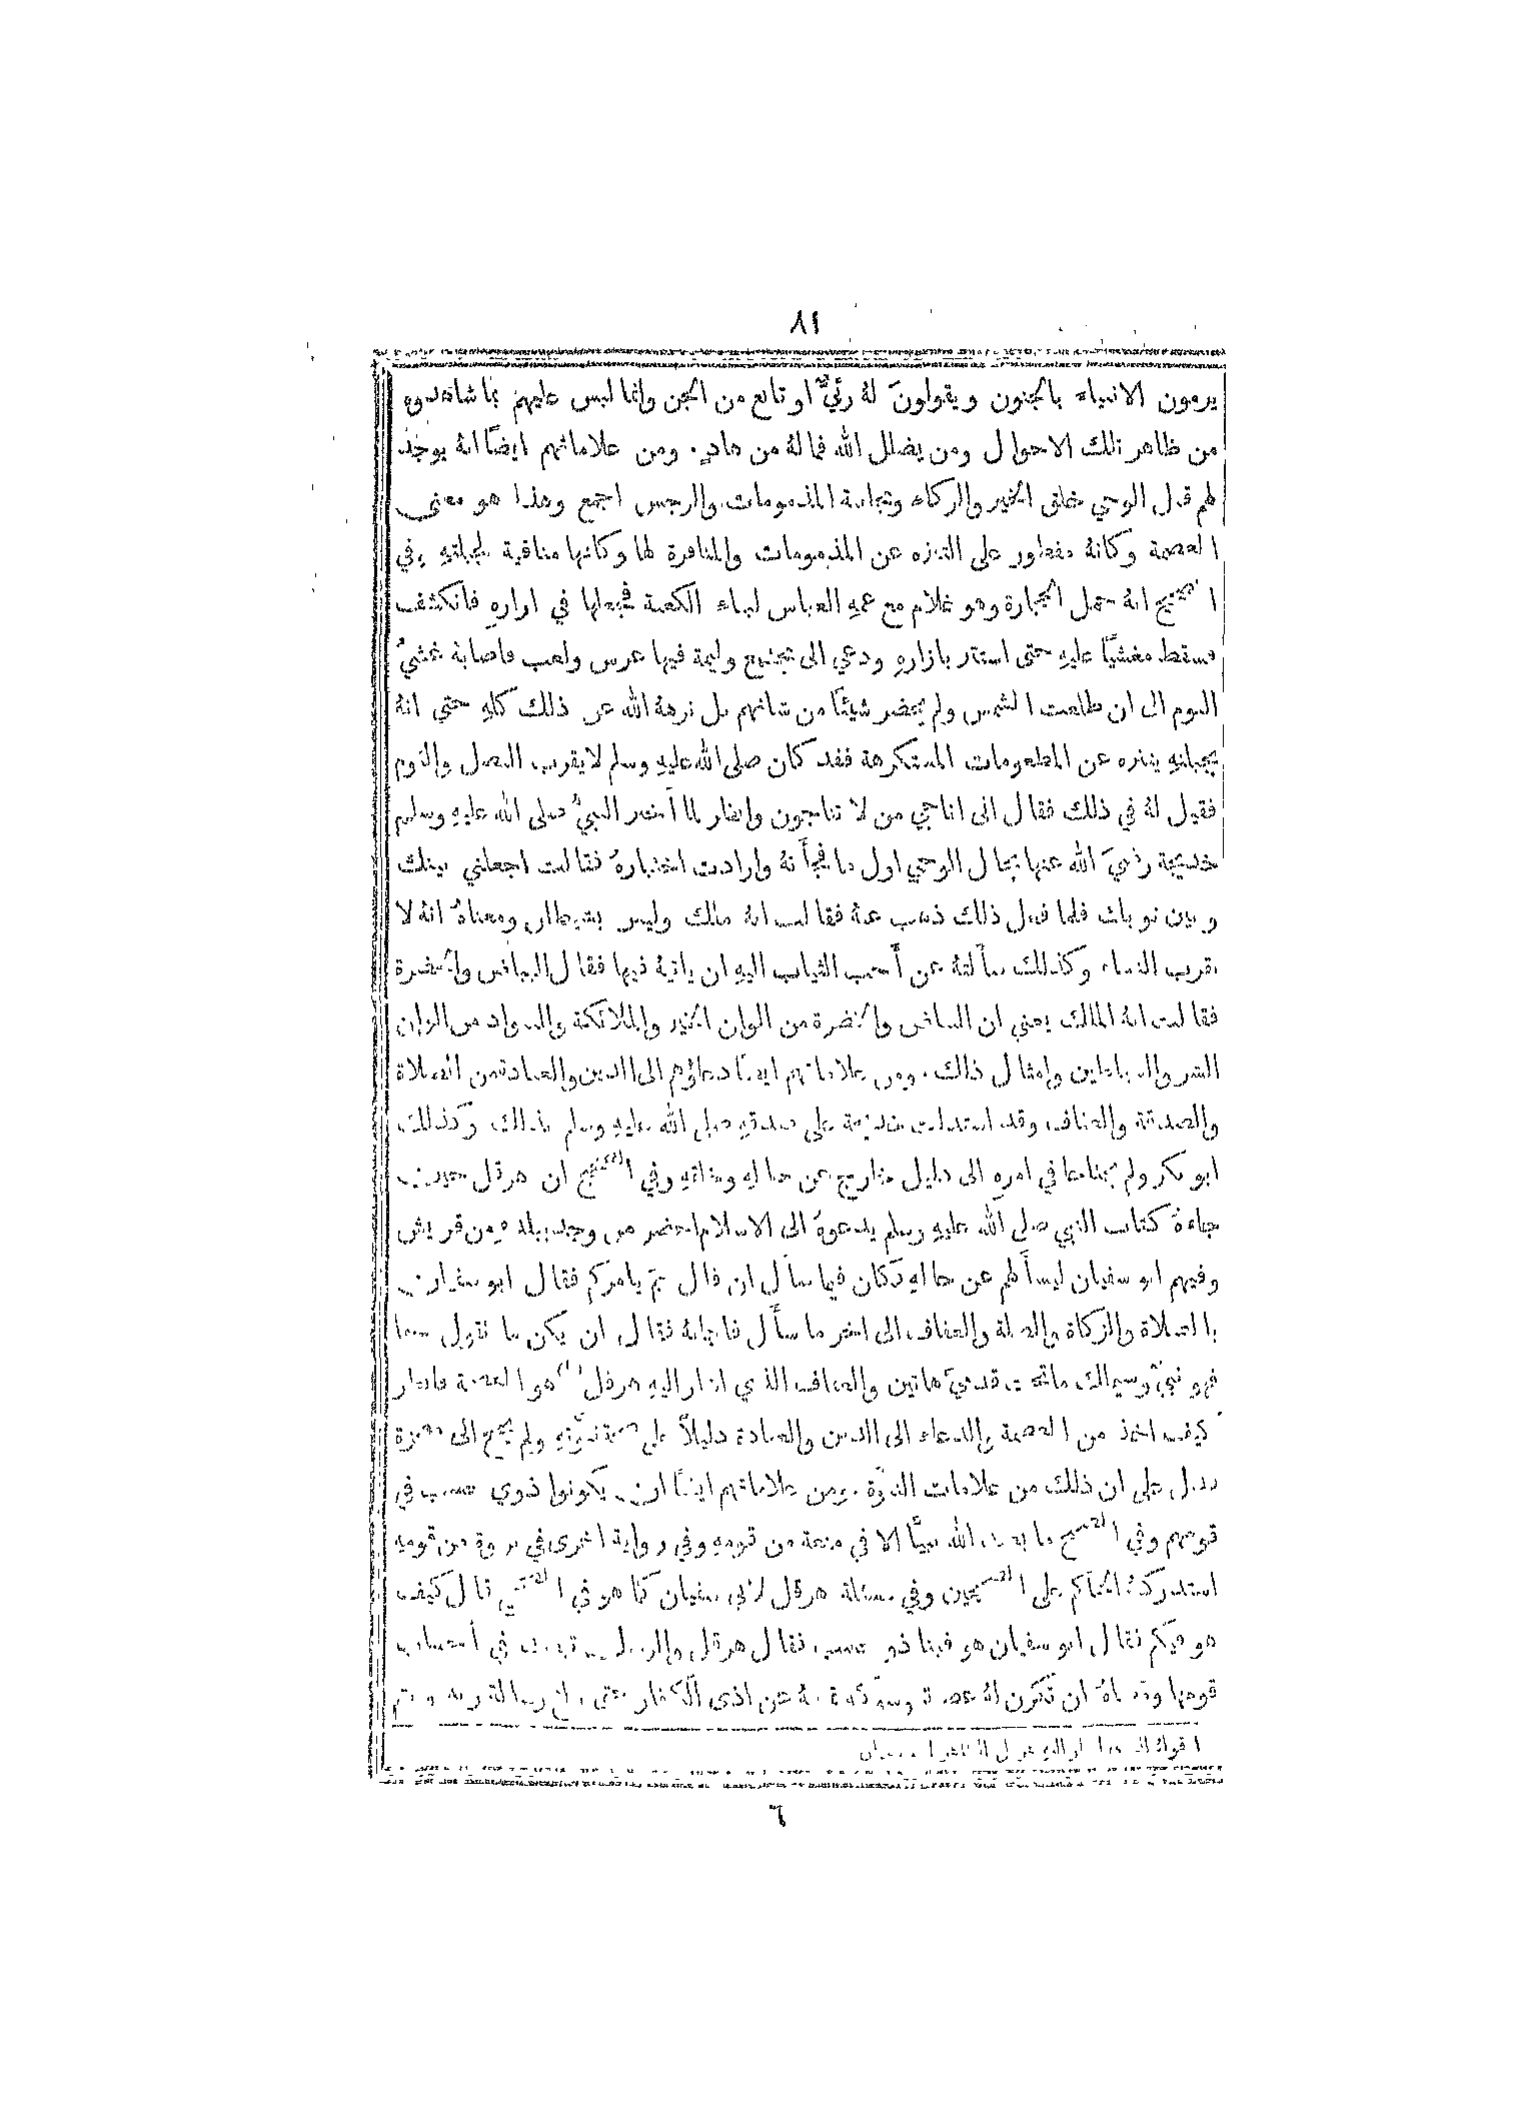 ٨١
يرمون الانبياء بالجنون ويقولونَ لهُ رئيٌّ او تابع من الجن وانما لبس عليهم بما شاهدوه
من ظاهر تلك الاحوال ومن يضلل الله فما لهُ من هادٍ. ومن علاماتهم ايضًا انهُ يوجد
لهم قبل الوحي خلق الخير والزكاء ومجانبة المذمومات والرجس اجمع وهذا هو معنى
العصمة وكانهُ مفطور على التنزه عن المذمومات والمنافرة لها وكانها منافية لجبلتهِ وفي
الصحيح انهُ حمل الحجارة وهو غلام مع عمهِ العباس لبناء الكعبة فجعلها في ازارهِ فانكشف
فسقط مغشيًّا عليهِ حتى استتر بازارهِ ودعي الى مجتمع وليمة فيها عرس ولعب فاصابهُ غشيُ
النوم الى ان طلعت الشمس ولم يحضر شيئًا من شانهم بل نزههُ الله عن ذلك كلهِ حتى انهُ
بجبلتهِ يتنزه عن المطعومات المستكرهة فقد كان صلى الله عليهِ وسلم لا يقرب البصل والثوم
فقيل لهُ في ذلك فقال اني اناجي من لا تناجون وانظر لما اخبر النبيُ صلى الله عليهِ وسلم
خديجة رضيَ الله عنها بحال الوحي اول ما فجأَتهُ وارادت اختبارهُ فقالت اجعلني بينك
وبين ثوبك فلما فعل ذلك ذهب عنهُ فقالت انهُ ملك وليس بشيطان ومعناهُ انهُ لا
يقرب النساء وكذلك سأَلتهُ عن أَحب الثياب اليهِ ان ياتيهُ فيها فقال البياض والخضرة
فقالت انهُ الملك يعني ان البياض والخضرة من الوان الخير والملائكة والسواد من الوان
الشر والشياطين وامثال ذلك. ومن علاماتهم ايضًا دعاؤهم الى الدين والعبادة من الصلاة
والصدقة والعفاف وقد استدلت خديجة على صدقهِ صلى الله عليهِ وسلم بذلك وكذلك
ابو بكر ولم يحتاجا في امرهِ الى دليل خارج عن حالهِ وخلقهِ وفي الصحيح ان هرقل حين
جاءهُ كتاب النبي صلى الله عليهِ وسلم يدعوهُ الى الاسلام احضر من وجد ببلدهِ من قريش
وفيهم ابو سفيان ليسأَلهم عن حالهِ فكان فيما سأَل ان قال بمَ يامركم فقال ابو سفيان
بالصلاة والزكاة والصلة والعفاف الى اخر ما سأَل فاجابهُ فقال ان يكن ما تقول حقا
فهو نبيٌّ وسيملك ما تحت قدميَّ هاتين والعفاف الذي اشار اليهِ هرقل هو العصمة فانظر
كيف اخذ من العصمة والدعاء الى الدين والعبادة دليلاً على صحة نبوَّتهِ ولم يحتج الى معجزة
فدل على ان ذلك من علامات النبوَّة. ومن علاماتهم ايضًا ان يكونوا ذوي حسب في
قومهم وفي الصحيح ما بعث الله نبيًّا الا في منعة من قومهِ وفي رواية اخرى في ثروة من قومهِ
استدركهُ الحاكم على الصحيحين وفي مسئلة هرقل لابي سفيان كما هو في الصحيح قال كيف
هو فيكم فقال ابو سفيان هو فينا ذو حسب فقال هرقل والرسل تبعث في أَحساب
قومها ومعناهُ ان تكون لهُ عصبة وشوكة تمنعهُ عن اذى الكفار حتى يبلغ رسالة ربهِ ويتم
٦